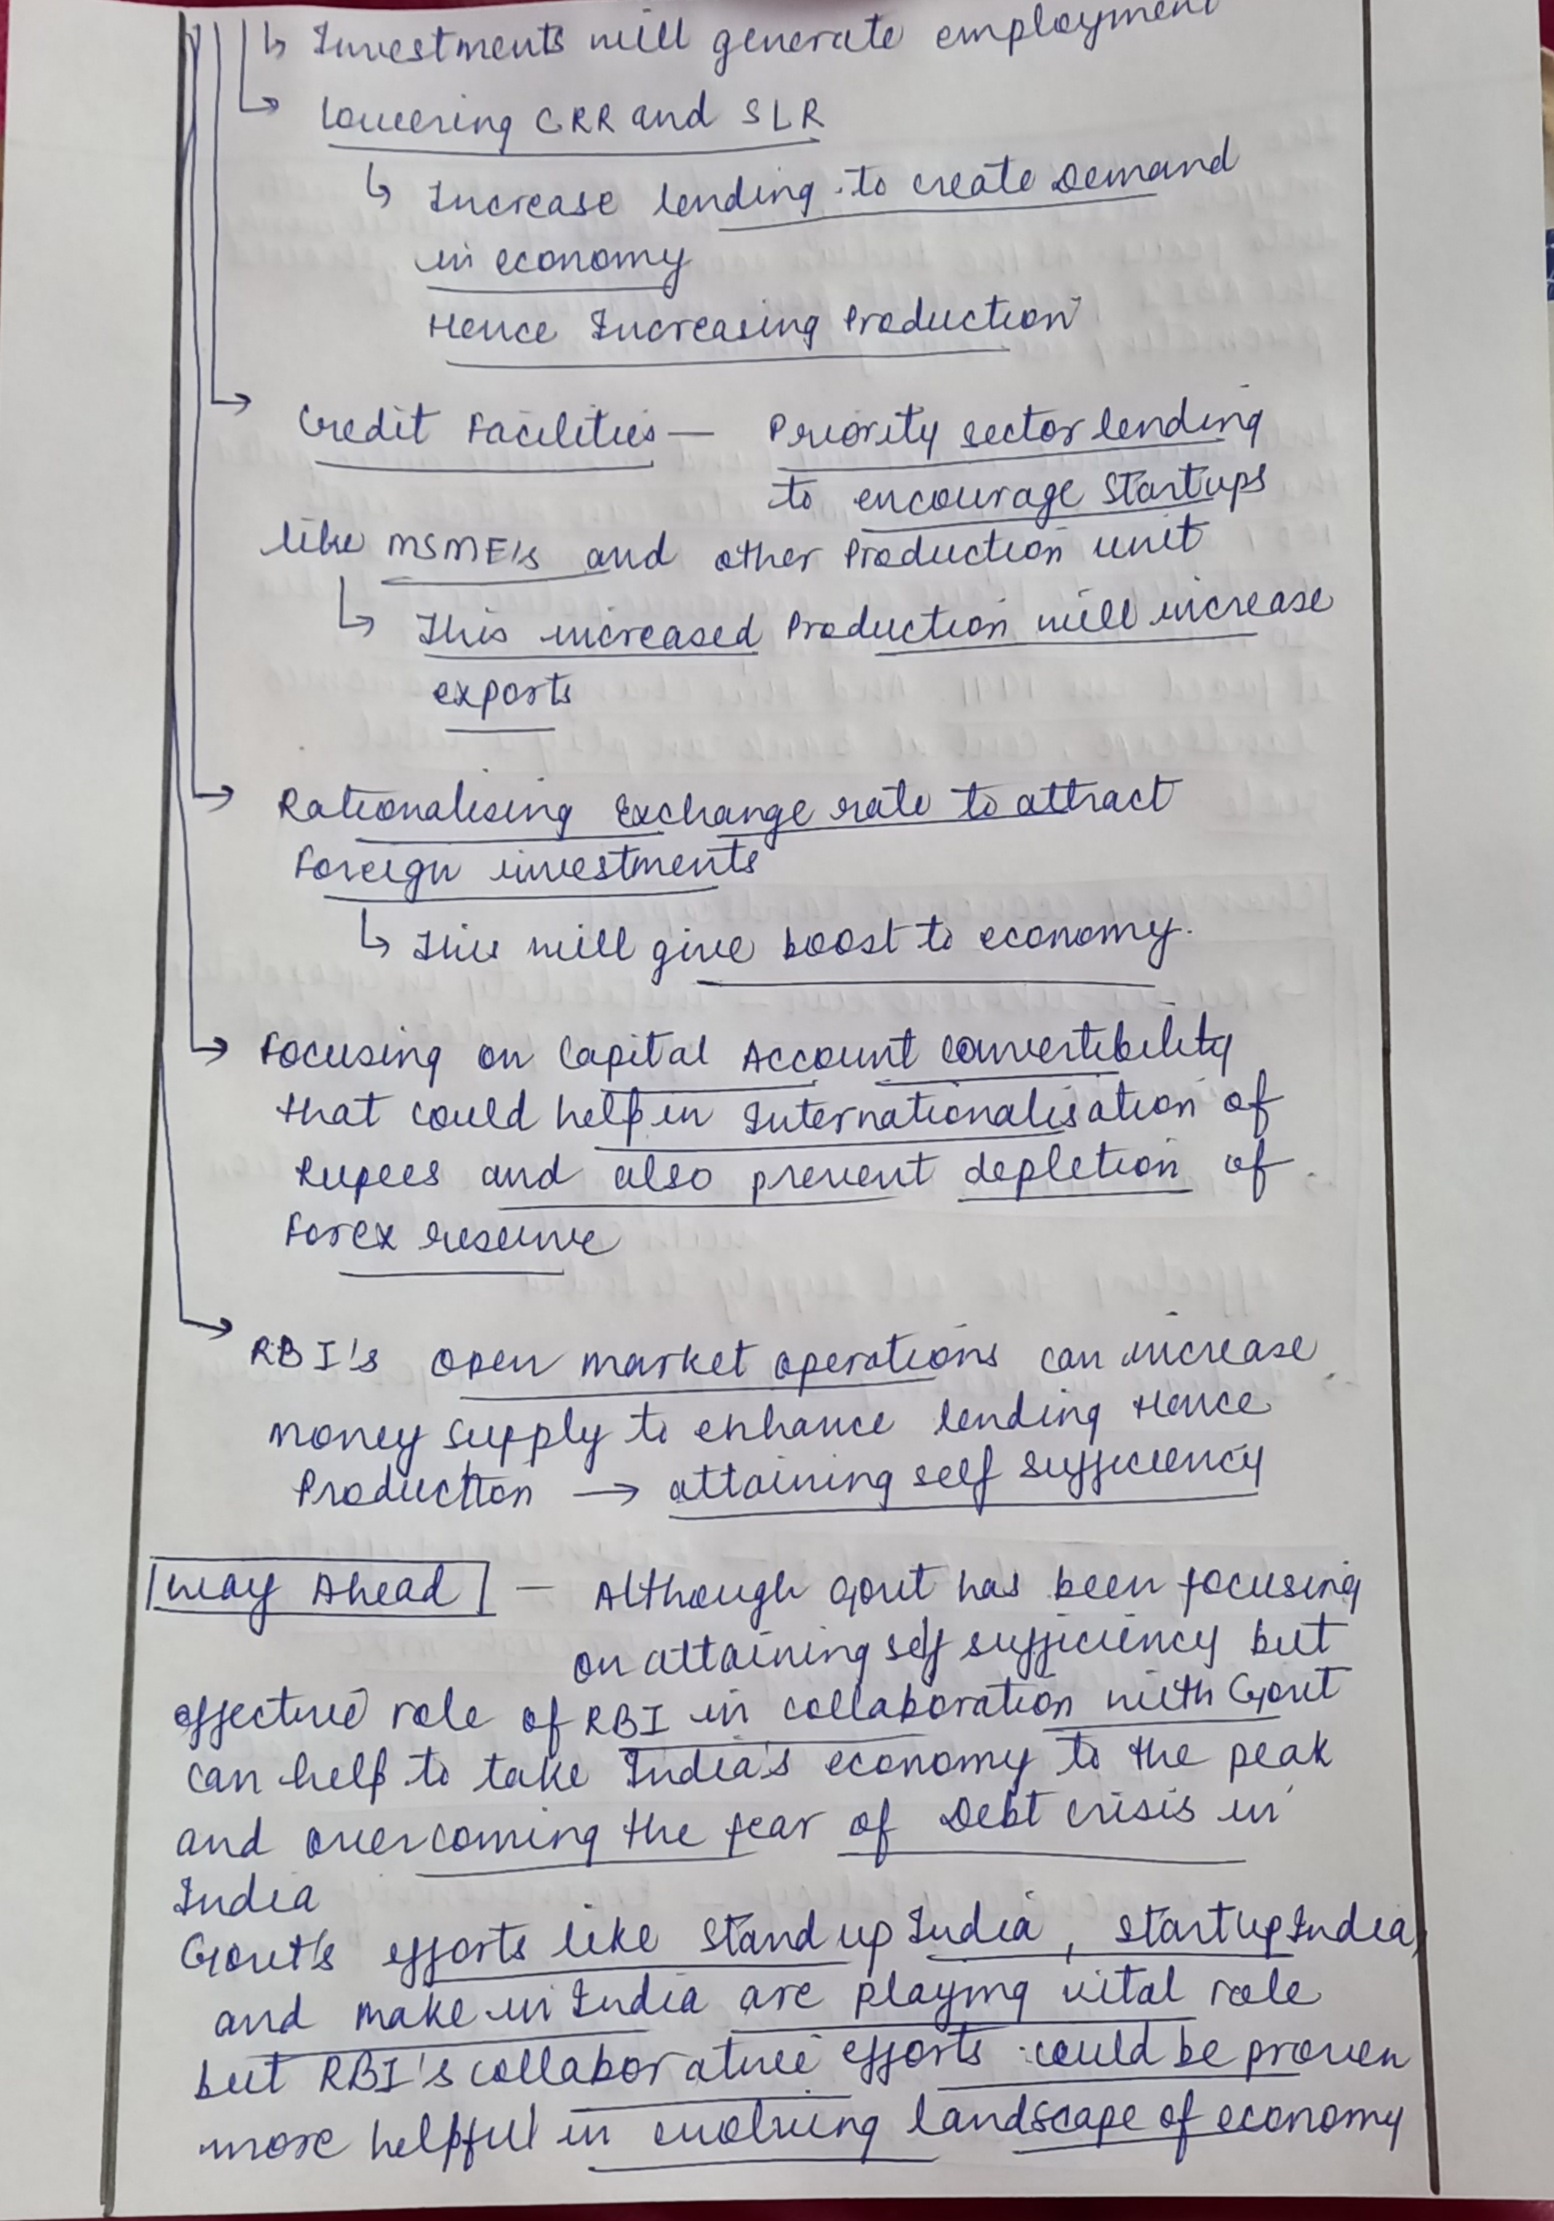 ↳ Investments will generate employment
→ Lowering CRR and SLR
↳ Increase lending to create Demand
in economy
Hence Increasing Production
→ Credit Facilities — Priority sector lending
to encourage Startups
like MSME's and other Production unit
↳ This increased Production will increase
exports
→ Rationalising Exchange rate to attract
Foreign investments
↳ This will give boost to economy.
→ Focusing on Capital Account convertibility
that could help in Internationalisation of
Rupees and also prevent depletion of
Forex reserve
→ RBI's open market operations can increase
money supply to enhance lending Hence
Production → attaining self sufficiency
Way Ahead — Although Govt has been focusing
on attaining self sufficiency but
effective role of RBI in collaboration with Govt
can help to take India's economy to the peak
and overcoming the fear of Debt crisis in
India
Govt's efforts like Stand up India, Startup India,
and make in India are playing vital role
but RBI's collaborative efforts could be proven
more helpful in evolving landscape of economy